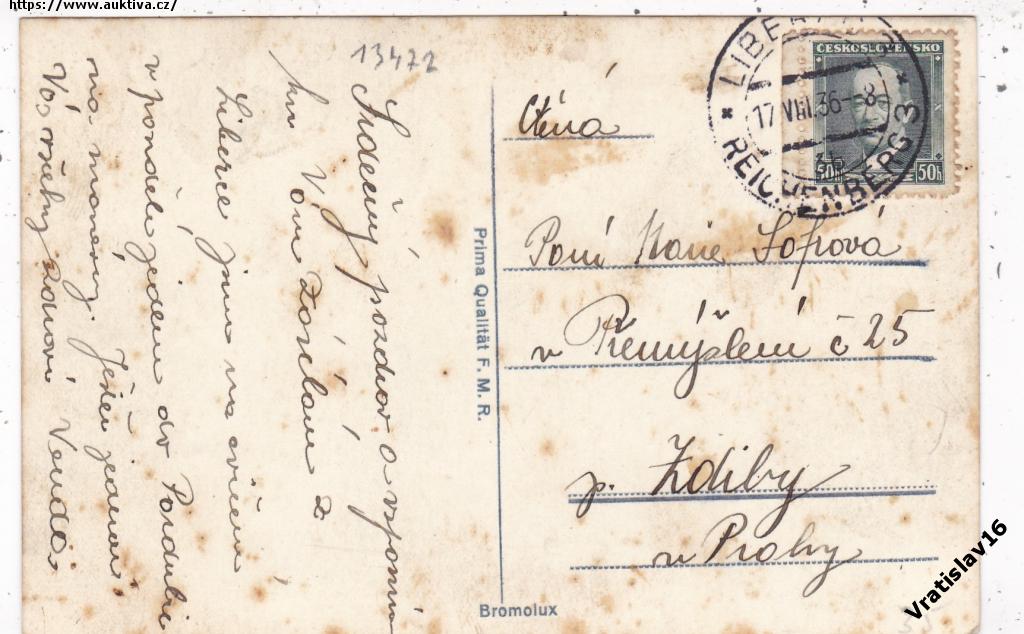 https://www.auktiva.cz/
13472
Srdečný pozdrav a vzpomín
ku Vám zasílám z
Liberce jsem na cvičení
v pondělí jedem do Pardubic
na manevry. Ještě jednou
Vás všechny zdraví Venda.
Prima Qualität F. M. R.
Bromolux
LIBEREC 3
17.VIII.36-8
REICHENBERG 3
ČESKOSLOVENSKO
50h
50h
Ctěná
Paní Marie Šofrová
v Přemýšlení č 25
p. Zdiby
u Prahy
Vratislav16